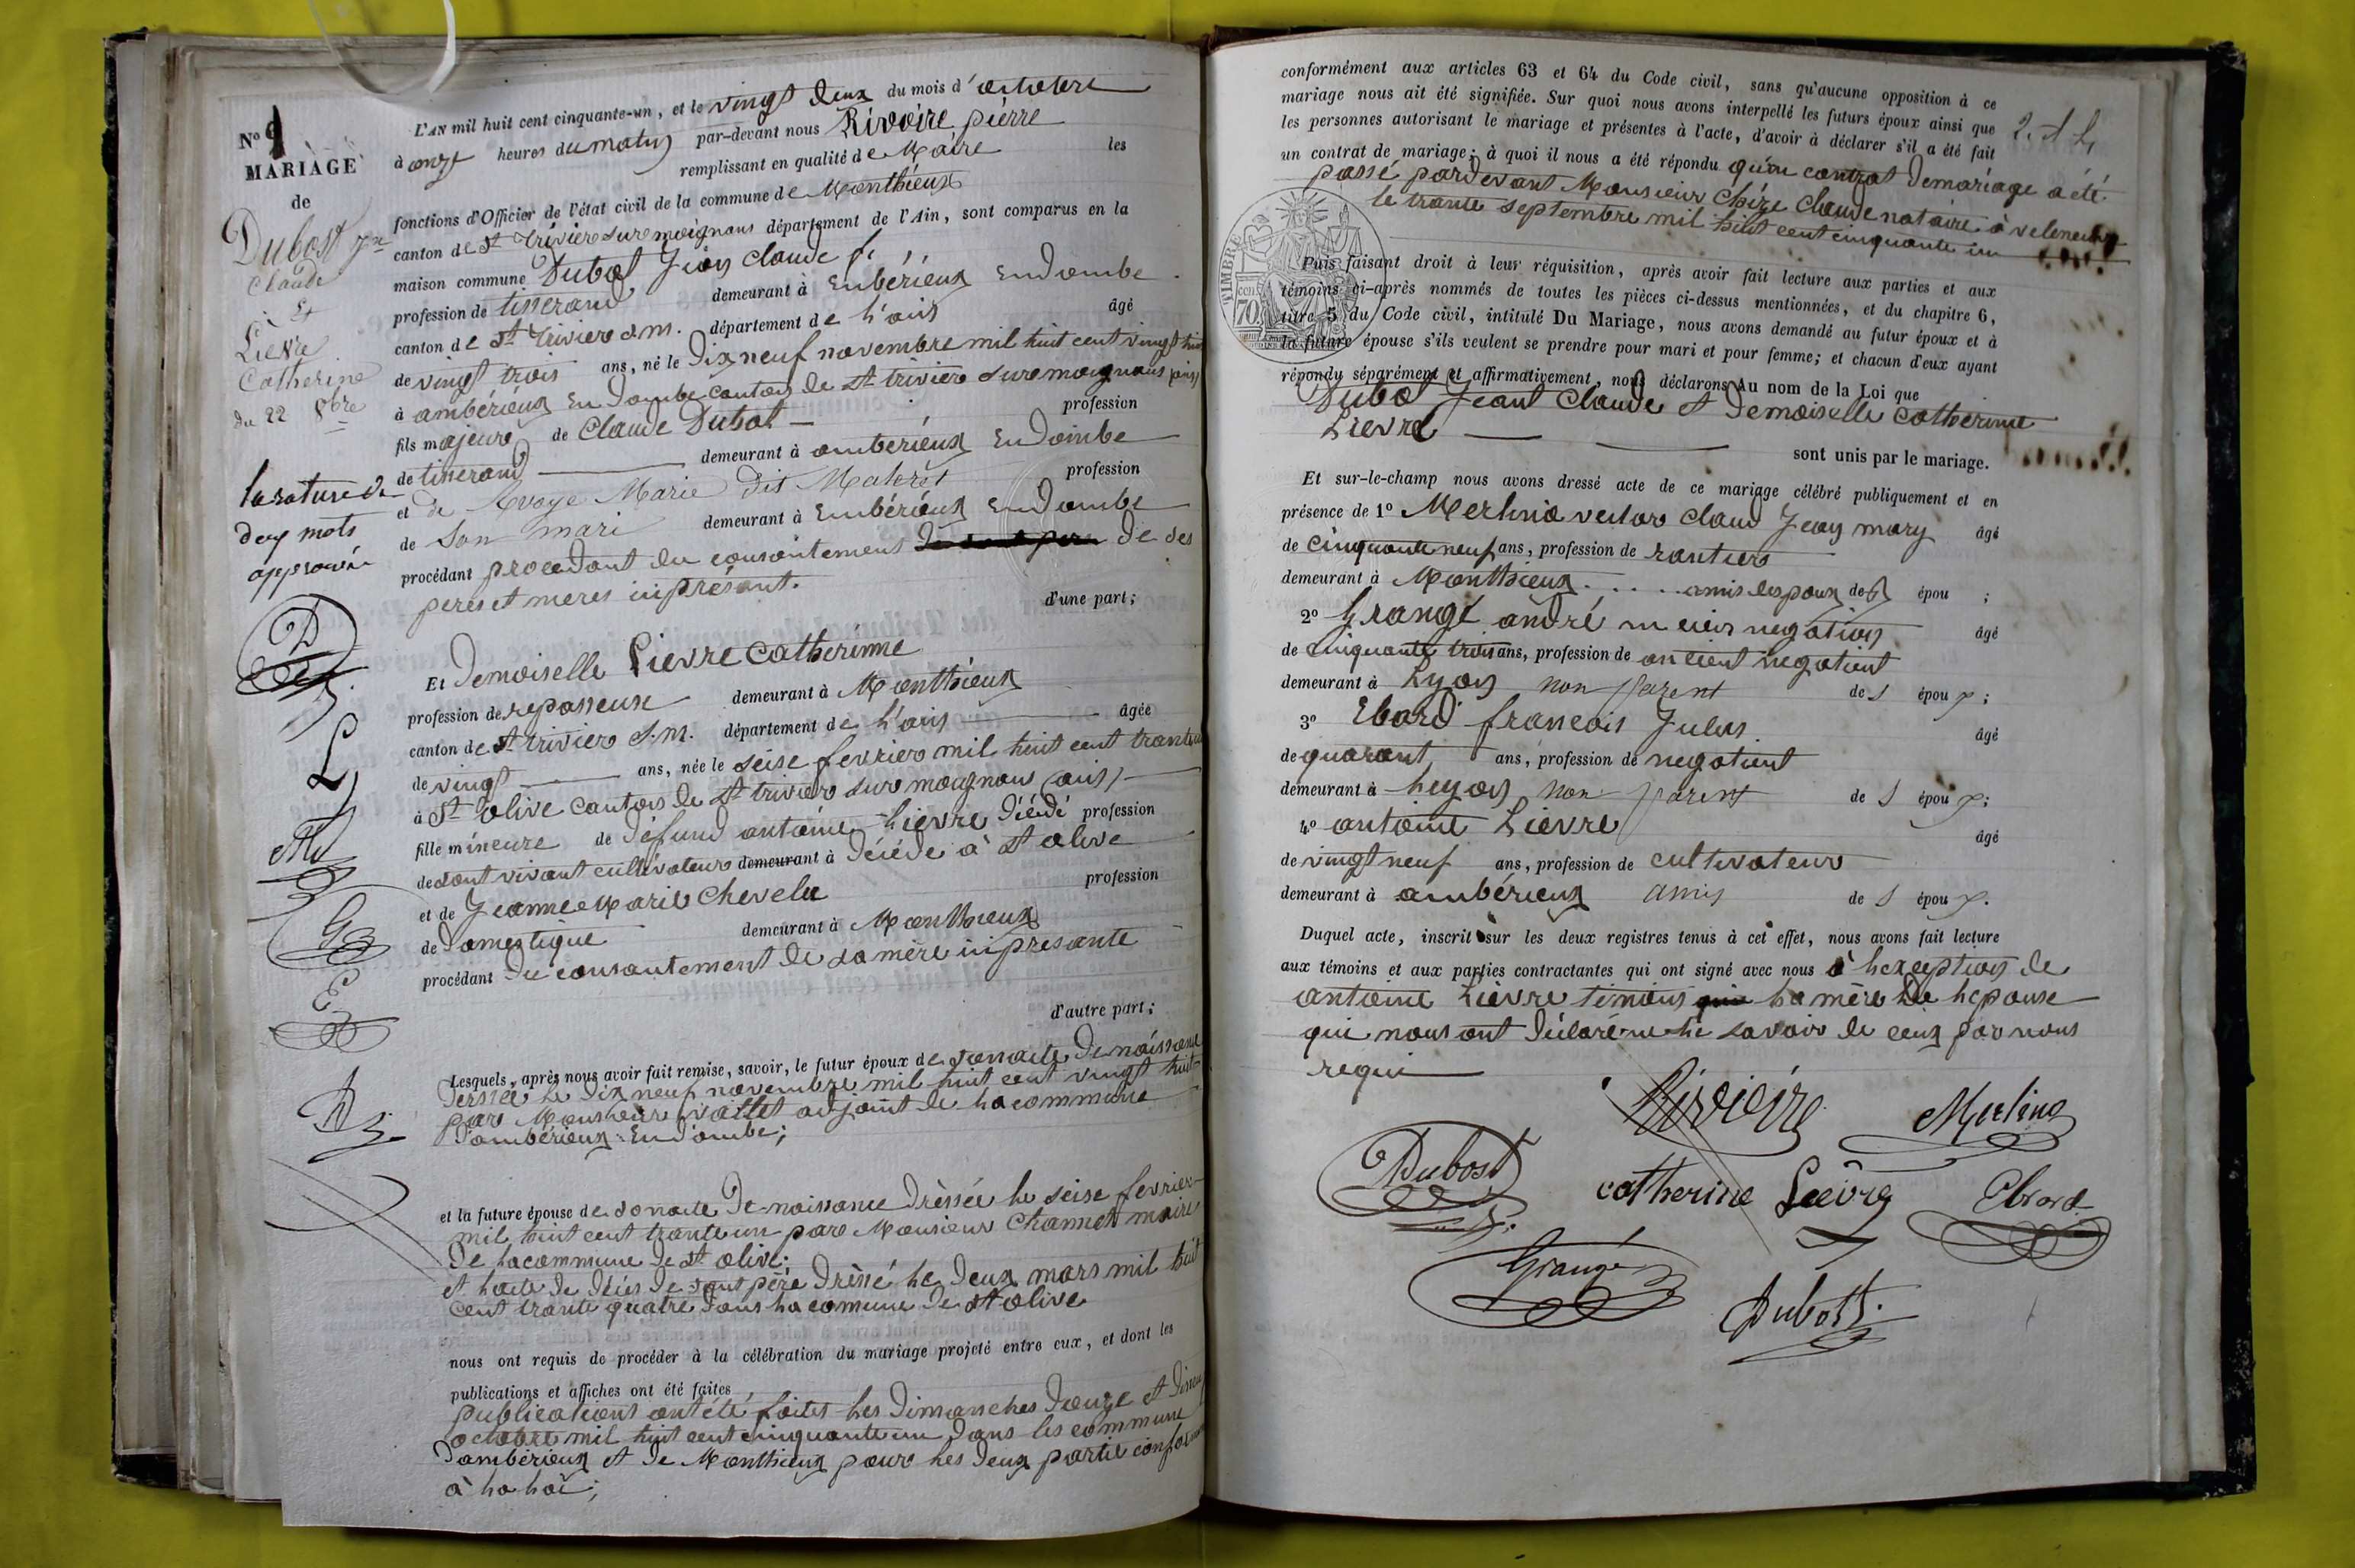 No 9
MARIAGE
de
Dubost Jn
Claude
Et
Lièvre
Catherine
du 22 8bre
la rature de
deux mots
approuvée
L'AN mil huit cent cinquante-un, et le vingt deux du mois d'octobre
à onze heures du matin par-devant nous Rivoire pierre
remplissant en qualité de Maire les
fonctions d'Officier de l'état civil de la commune de Monthieux
canton de St Trivier sur moignans département de l'Ain, sont comparus en la
maison commune Dubost Jean Claude
profession de tisserand demeurant à Enbérieux En Dombe
canton de St Trivier s m. département de l'ain âgé
de vingt trois ans, né le Dix neuf novembre mil huit cent vingt huit
à ambérieux En Dombe canton de St trivier sur moignans (ain)
fils majeur de Claude Dubot profession
de tisserand demeurant à ambérieux En Dombe
et de Marie dit profession
de Son mari demeurant à Enbérieux En Dombe
procédant procedant du consentement de ses
peres et meres ici présant.
d'une part;
Et Demoiselle Lievre Catherinne
profession de repasseuse demeurant à Monthieux
canton de St trivier S.m. département de l'ain âgée
de vingt ans, née le seise fevrier mil huit cent trante un
à St olive canton de St trivier sur moignans (ain)
fille mineure de défund antoine Lievre décédé profession
de dont vivant cultivateur demeurant à décédé à St olive
et de Jeanne Marie Chevelu profession
de Domestique demeurant à Monthieux
procédant du consantement de sa mère ici presante
d'autre part;
Lesquels, après nous avoir fait remise, savoir, le futur époux de son acte De naissance
Dressé le Dix neuf novembre mil huit cent vingt huit
par Monsieur adjoint de la commune
D'ambérieux En Dombe;
et la future épouse de son acte De naissance Drèssée le seise fevrier
mil huit cent trante un par Monsieur Channet maire
De la commune de St olive;
et l'acte de décés de sont père drèssé le Deux mars mil huit
cent trante quatre dans la comune de St olive
nous ont requis de procéder à la célébration du mariage projeté entre eux, et dont les
publications et affiches ont été faites
publications ont été faites les Dimanches Douze et
octobre mil huit cent cinquante un dans les commune
D'ambérieux et de Monthieux pour les deux partie
à la loi;
conformément aux articles 63 et 64 du Code civil, sans qu'aucune opposition à ce
mariage nous ait été signifiée. Sur quoi nous avons interpellé les futurs époux ainsi que
les personnes autorisant le mariage et présentes à l'acte, d'avoir à déclarer s'il a été fait
un contrat de mariage; à quoi il nous a été répondu qu'un contrat de mariage a été
passé pardevant Monsieur Chize Claude notaire à
le trante septembre mil huit cent cinquante un
TIMBRE
70
Puis faisant droit à leur réquisition, après avoir fait lecture aux parties et aux
témoins ci-après nommés de toutes les pièces ci-dessus mentionnées, et du chapitre 6,
titre 5 du Code civil, intitulé Du Mariage, nous avons demandé au futur époux et à
la future épouse s'ils veulent se prendre pour mari et pour femme; et chacun d'eux ayant
répondu séparément et affirmativement, nous déclarons Au nom de la Loi que
Dubot Jeant Claude et Demoiselle Catherinne
Lievre
sont unis par le mariage.
Et sur-le-champ nous avons dressé acte de ce mariage célébré publiquement et en
présence de 1o Merlino Claud Jean mary âgé
de cinquante neuf ans, profession de rantier
demeurant à Monthieux amis époux des épou ;
2o Grange andré âgé
de cinquante trois ans, profession de ancient negotient
demeurant à Lyon non parent de s épou x;
3o Ebard francois Jules âgé
de quarant ans, profession de negotient
demeurant à Leyon non parent de s épou x;
4o antoine Lievre âgé
de vingt neuf ans, profession de cultivateur
demeurant à ambérieux amis de s épou x.
Duquel acte, inscrit sur les deux registres tenus à cet effet, nous avons fait lecture
aux témoins et aux parties contractantes qui ont signé avec nous à l'exception de
antoine Lièvre témoins la mère de l'epouse
qui nous ont déclaré ne le savoir de ceux par nous
requi
Rivoire Merlino
Dubost catherine Lièvre Ebrard
Grange
Dubost